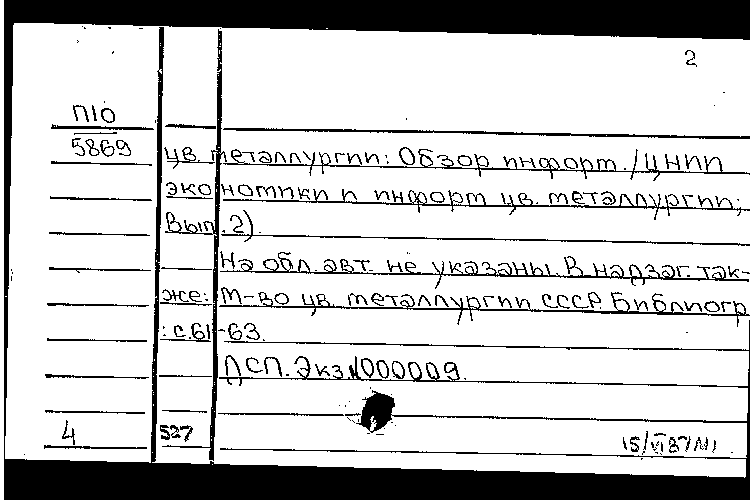 2
П10
5869
цв. металлургии: Обзор. информ. / ЦНИИ
экономики и информ. цв. металлургии;
Вып. 2).
На обл. авт. не указаны. В надзаг. так-
же: М-во цв. металлургии СССР. Библиогр.
: с. 61-63.
ДСП. Экз. 000009.
4
527
15/VI 87 М1